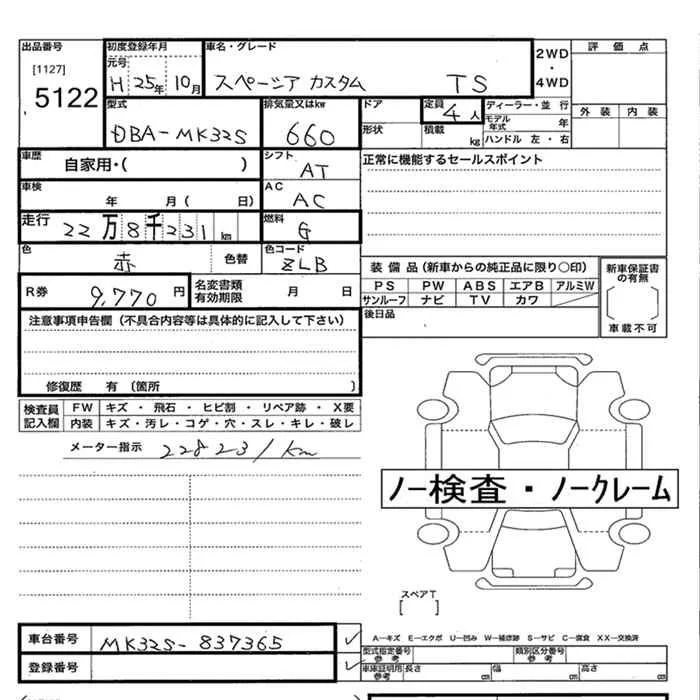 出品番号
[1127]
5122
初度登録年月
元号
H 25年 10月
車名・グレード
スペーシア カスタム TS
2WD
・
4WD
評価点
外装 内装
型式
DBA-MK32S
排気量又はkw
660
ドア
形状
定員
4人
積載
kg
ディーラー・並行
モデル年式 年
ハンドル 左・右
車歴
自家用・( )
シフト
AT
正常に機能するセールスポイント
車検
年 月( 日)
AC
AC
走行
22万8千231km
燃料
G
色
赤
色替
色コード
ZLB
装備品(新車からの純正品に限り○印)
PS PW ABS エアB アルミW
サンルーフ ナビ TV カワ
新車保証書の有無
車載不可
R券
9,770 円
名変書類有効期限
月 日
後日品
注意事項申告欄(不具合内容等は具体的に記入して下さい)
修復歴 有 (箇所 )
検査員記入欄
FW キズ・飛石・ヒビ割・リペア跡・X要
内装 キズ・汚レ・コゲ・穴・スレ・キレ・破レ
メーター指示 228231km
ノー検査・ノークレーム
スペアT
[ ]
車台番号
MK32S-837365
登録番号
A—キズ E—エクボ U—凹み W—補修跡 S—サビ C—腐食 XX—交換済
型式指定番号
参考
類別区分番号
参考
車庫証明用
参考
長さ cm 幅 cm 高さ cm